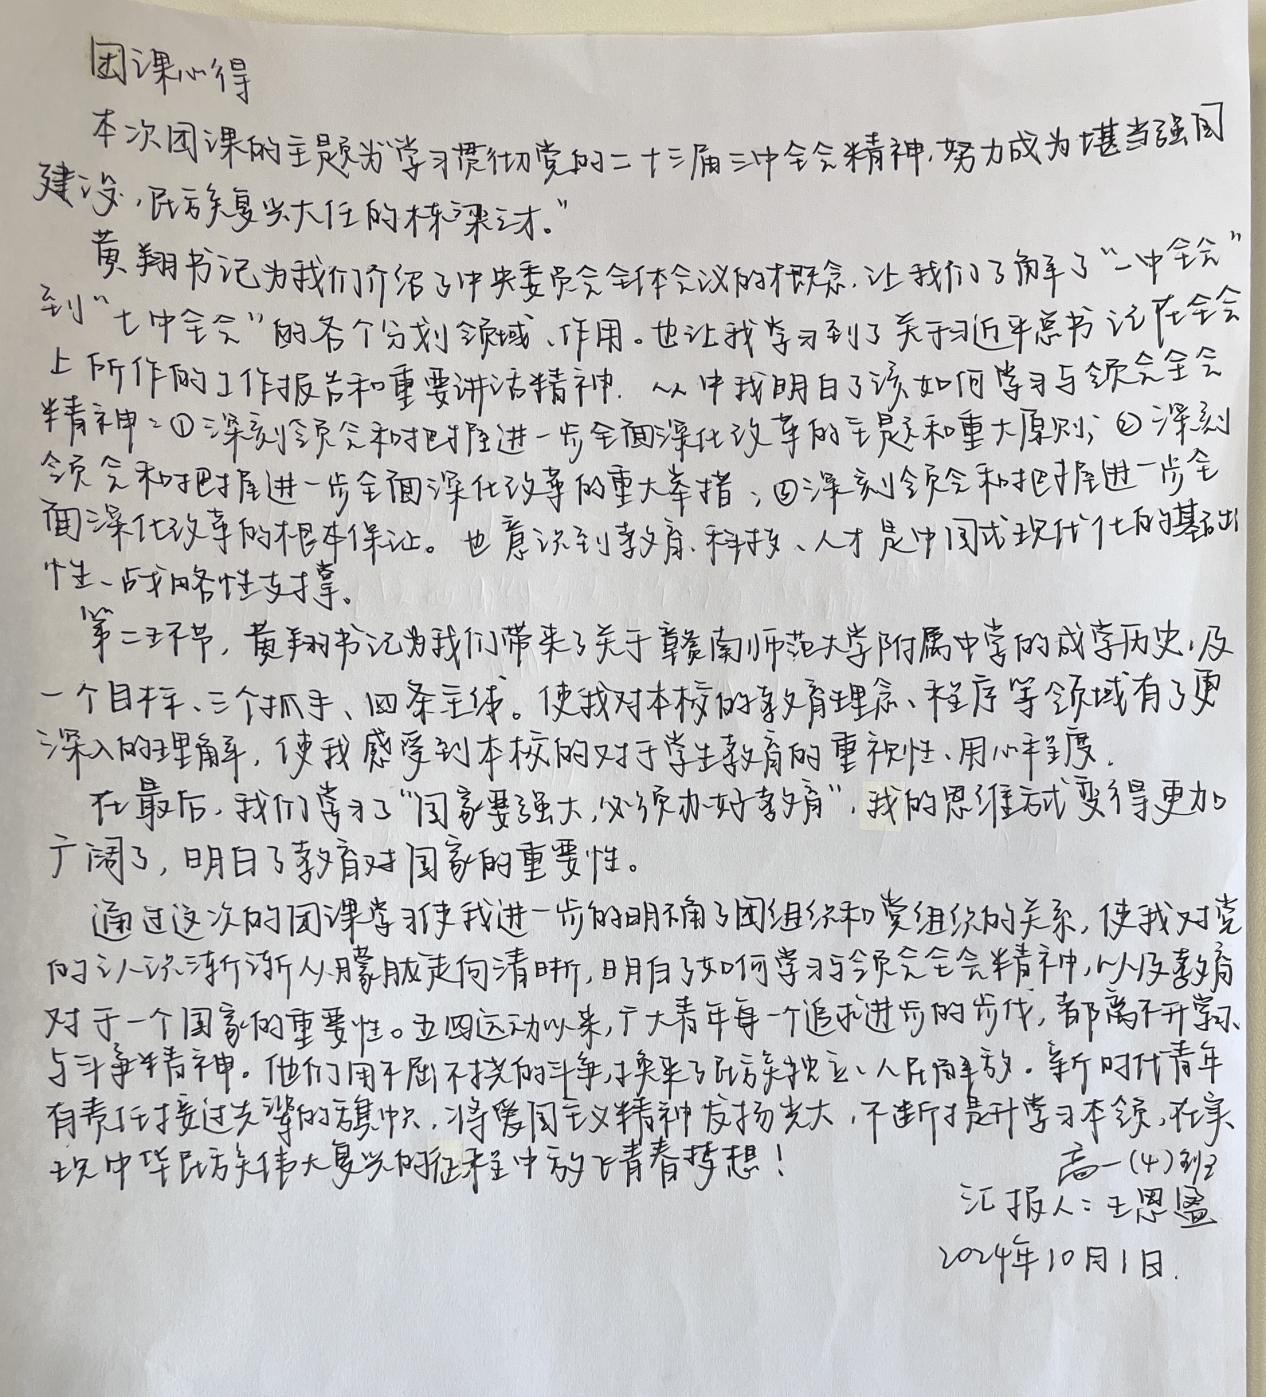 团课心得
本次团课的主题为“学习贯彻党的二十三届三中全会精神,努力成为堪当强国
建设,民族复兴大任的栋梁之才。”
黄翔书记为我们介绍了中央委员会全体会议的概念,让我们了解了“一中全会”
到“七中全会”的各个分划领域、作用。也让我学习到了关于习近平总书记在全会
上所作的工作报告和重要讲话精神.从中我明白了该如何学习与领会全会
精神:①深刻领会和把握进一步全面深化改革的主题和重大原则;②深刻
领会和把握进一步全面深化改革的重大举措;③深刻领会和把握进一步全
面深化改革的根本保证。也意识到教育、科技、人才是中国式现代化的基础
性、战略性支撑。
第二环节,黄翔书记为我们带来了关于赣南师范大学附属中学的成学历史,及
一个目标、三个抓手、四条主线。使我对本校的教育理念、程序等领域有了更
深入的理解,使我感受到本校的对于学生教育的重视性、用心程度.
在最后,我们学习了“国家要强大,必须办好教育”,我的思维方式变得更加
广阔了,明白了教育对国家的重要性。
通过这次的团课学习使我进一步的明确了团组织和党组织的关系,使我对党
的认识渐渐从朦胧走向清晰,明白了如何学习与领会全会精神,以及教育
对于一个国家的重要性。五四运动以来,广大青年每一个追求进步的步伐,都离不开学习
与斗争精神。他们用不屈不挠的斗争,换来了民族独立、人民解放。新时代青年
有责任接过先辈的旗帜,将爱国主义精神发扬光大,不断提升学习本领,在实
现中华民族伟大复兴的征程中放飞青春梦想!
高一(4)班
汇报人:王恩盈
2024年10月1日.